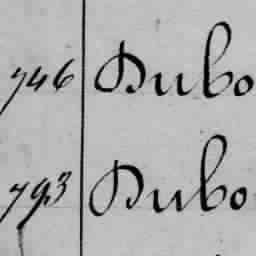 746 Dubo
793 Dubo